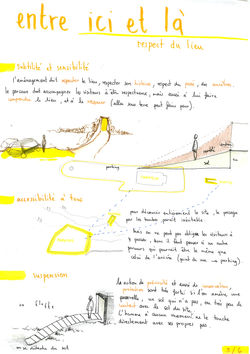 entre ici et là
respect du lieu
subtilité et sensibilité
l'aménagement doit respecter le lieu, respecter son histoire, respect du passé, des ancêtres.
le parcours doit accompagner les visiteurs à être respectueux, mais aussi à lui faire
comprendre le lieu, et à le respecter (aller sur terre peut faire peur).
parking
sol
accessibilité à tous
pour découvrir entièrement le site, le passage
par les tombes paraît inévitable
mais on ne peut pas obliger les visiteurs à
y passer, donc il faut penser à un autre
parcours qui pourrait être le même que
celui de l'arrivée (point de vue au parking).
suspension
la notion de préciosité et aussi de conservation,
protection sont très forts si l'on amène une
passerelle, un sol qui n'a pas, ou très peu de
contact avec le sol du site.
L'homme à aucun moment ne le touche
directement avec ses propres pas.
se détache du sol